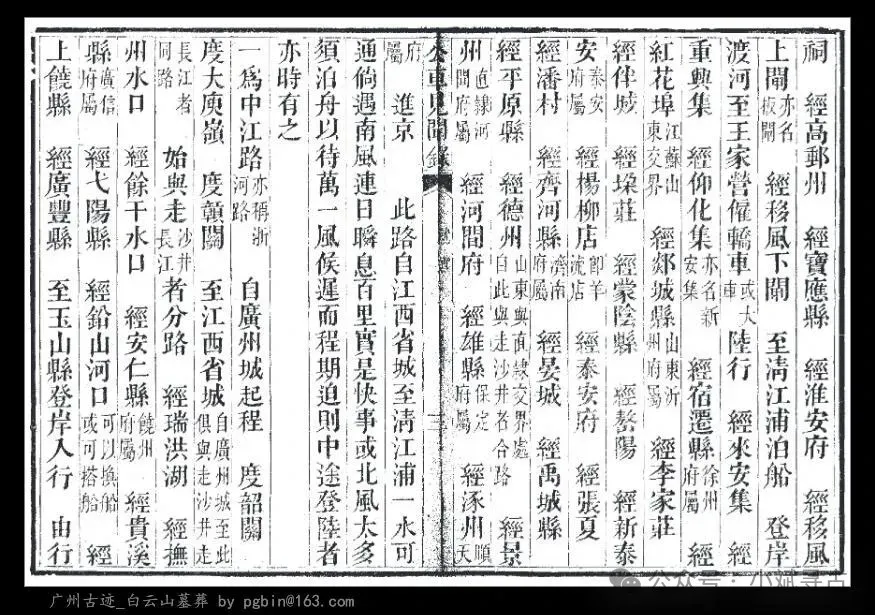 祠 經高郵州 經寶應縣 經淮安府 經移風
上閘亦名板閘 經移風下閘 至淸江浦泊船 登岸
渡河至王家營僱轎車或大車陸行 經來安集 經
重興集 經仰化集亦名新安集 經宿遷縣徐州府屬 經
紅花埠江蘇山東交界 經郯城縣山東沂州府屬 經李家莊
經伴城 經垜莊 經蒙陰縣 經嶅陽 經新泰
安泰安府屬 經楊柳店卽羊流店 經泰安府 經張夏
經潘村 經齊河縣濟南府屬 經晏城 經禹城縣
經平原縣 經德州山東與直隸交界處自此與走沙井者合路 經景
州直隸河間府屬 經河間府 經雄縣保定府屬 經涿州順天
公車見聞錄 三
府屬 進京 此路自江西省城至淸江浦一水可
通倘遇南風連日瞬息百里實是快事或北風太多
須泊舟以待萬一風候遲而程期迫則中途登陸者
亦時有之
一爲中江路亦稱浙河路 自廣州城起程 度韶關
度大庾嶺 度贛關 至江西省城自廣州城至此俱與走沙井走
長江者同路 始與走沙井長江者分路 經瑞洪湖 經撫
州水口 經餘干水口 經安仁縣饒州府屬 經貴溪
縣廣信府屬 經弋陽縣 經鉛山河口可以換船或可搭船 經
上饒縣 經廣豐縣 至玉山縣登岸入行 由行
公众号·小斌寻古
广州古迹_白云山墓葬 by pgbin@163.com